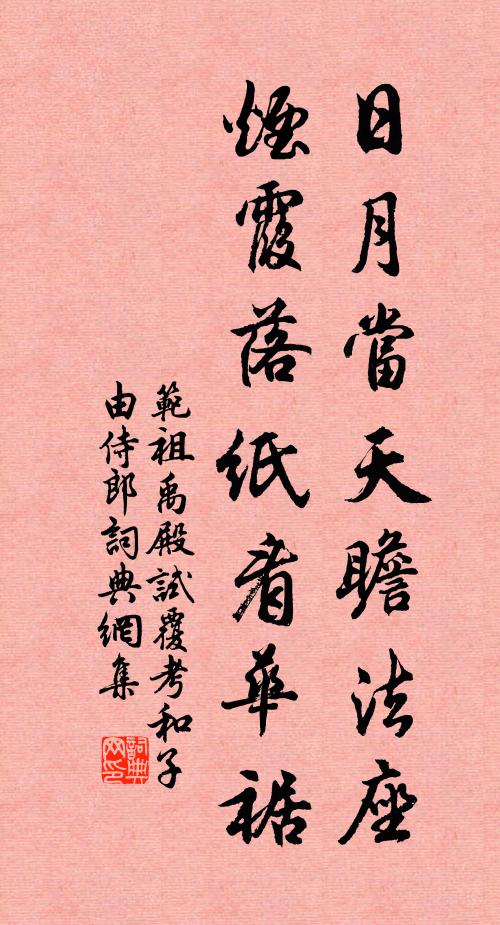 日月當天瞻法座
煙霞落紙看華裾
範祖禹殿試覆考和子
由侍郎詞典網集
詞典网印